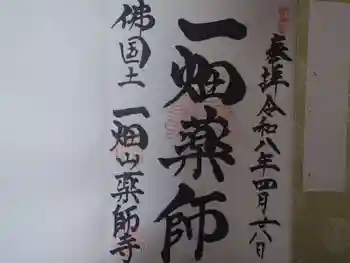 奉拝令和八年四月六日
一畑薬師
佛国土一畑山薬師寺